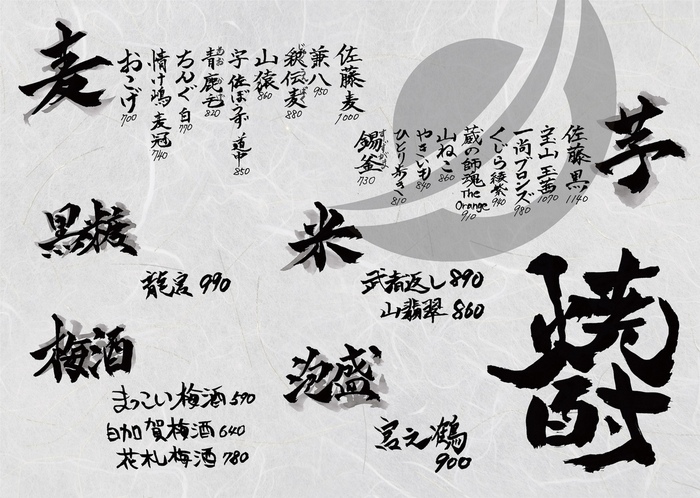 焼酎
芋
佐藤 黒 1140
宝山 玉茜 1070
一尚ブロンズ 980
くじら綾紫 940
蔵の師魂 The Orange 910
山ねこ 860
やきいも 840
ひとり歩き 810
錫釜 730
麦
佐藤 麦 1000
兼八 950
銀伝麦 880
山猿 860
宇佐ぼうず 道中 850
青鹿毛 820
ちんぐ 白 770
情け嶋 麦冠 740
おこげ 700
黒糖
龍宮 990
米
武者返し 890
山翡翠 860
梅酒
まっこい梅酒 590
白加賀梅酒 640
花札梅酒 780
泡盛
宮之鶴 900